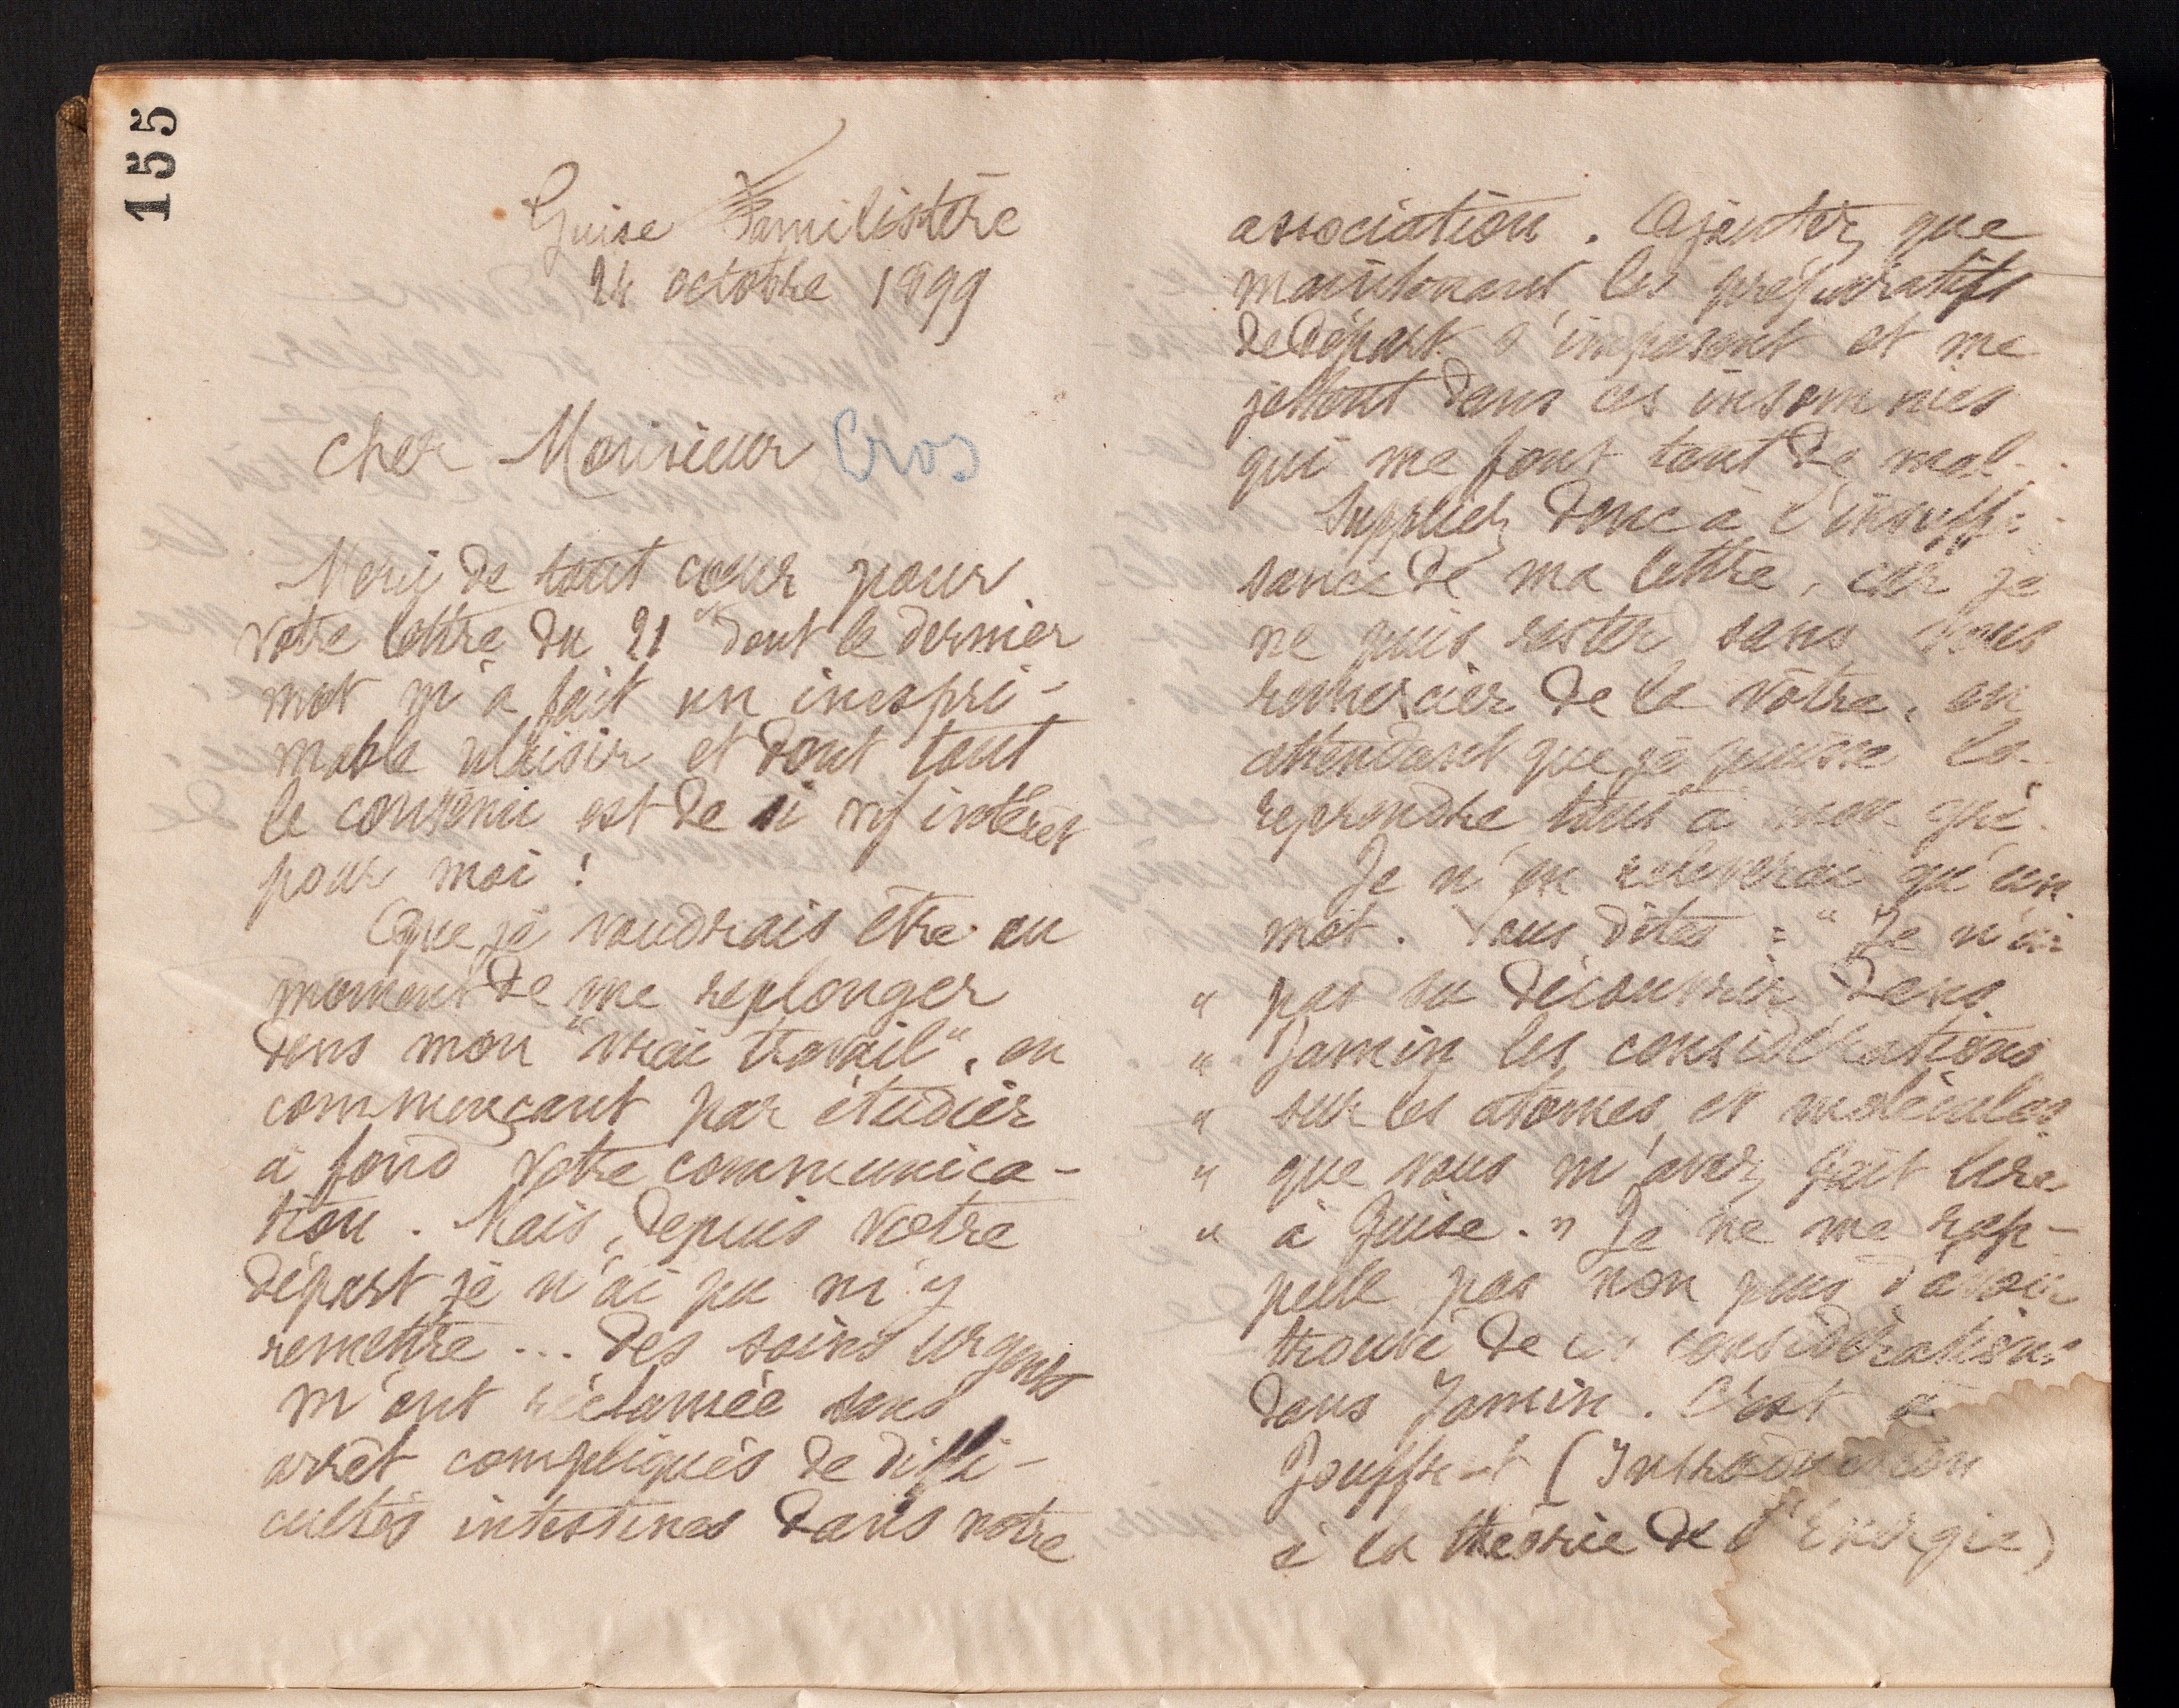 155
Guise Familistère
24 octobre 1899
Cher Monsieur Cros
Merci de tout cœur pour
votre lettre du 21 dont le dernier
mot m'a fait un inexpri-
mable plaisir et dont tout
le contenu est de si vif intérêt
pour moi !
Que je voudrais être au
moment de me replonger
dans mon "vrai travail", en
commençant par étudier
à fond votre communica-
tion. Mais, depuis votre
départ je n'ai pu m'y
remettre ... Des soins urgents
m'ont réclamée sans
arrêt compliqués de diffi-
cultés intestines dans notre
association. Ajoutez que
maintenant les préparatifs
de départ s'imposent et me
jettent dans ces insomnies
qui me font tant de mal.
Suppléez donc à l'insuffi-
sance de ma lettre, car je
ne puis rester sans vous
remercier de la vôtre, en
attendant que je puisse la
reprendre tout à mon gré.
Je n'en relèverai qu'un
mot. Vous dites : "Je n'ai
" pas su découvrir dans
" Jamin les considérations
" sur les atomes et molécules
" que vous m'avez fait lire
" à Guise." Je ne me rap-
pelle pas non plus d'avoir
trouvé de ces considérations
dans Jamin. C'est à
Jouffret (Introduction
à la théorie de l'Énergie)